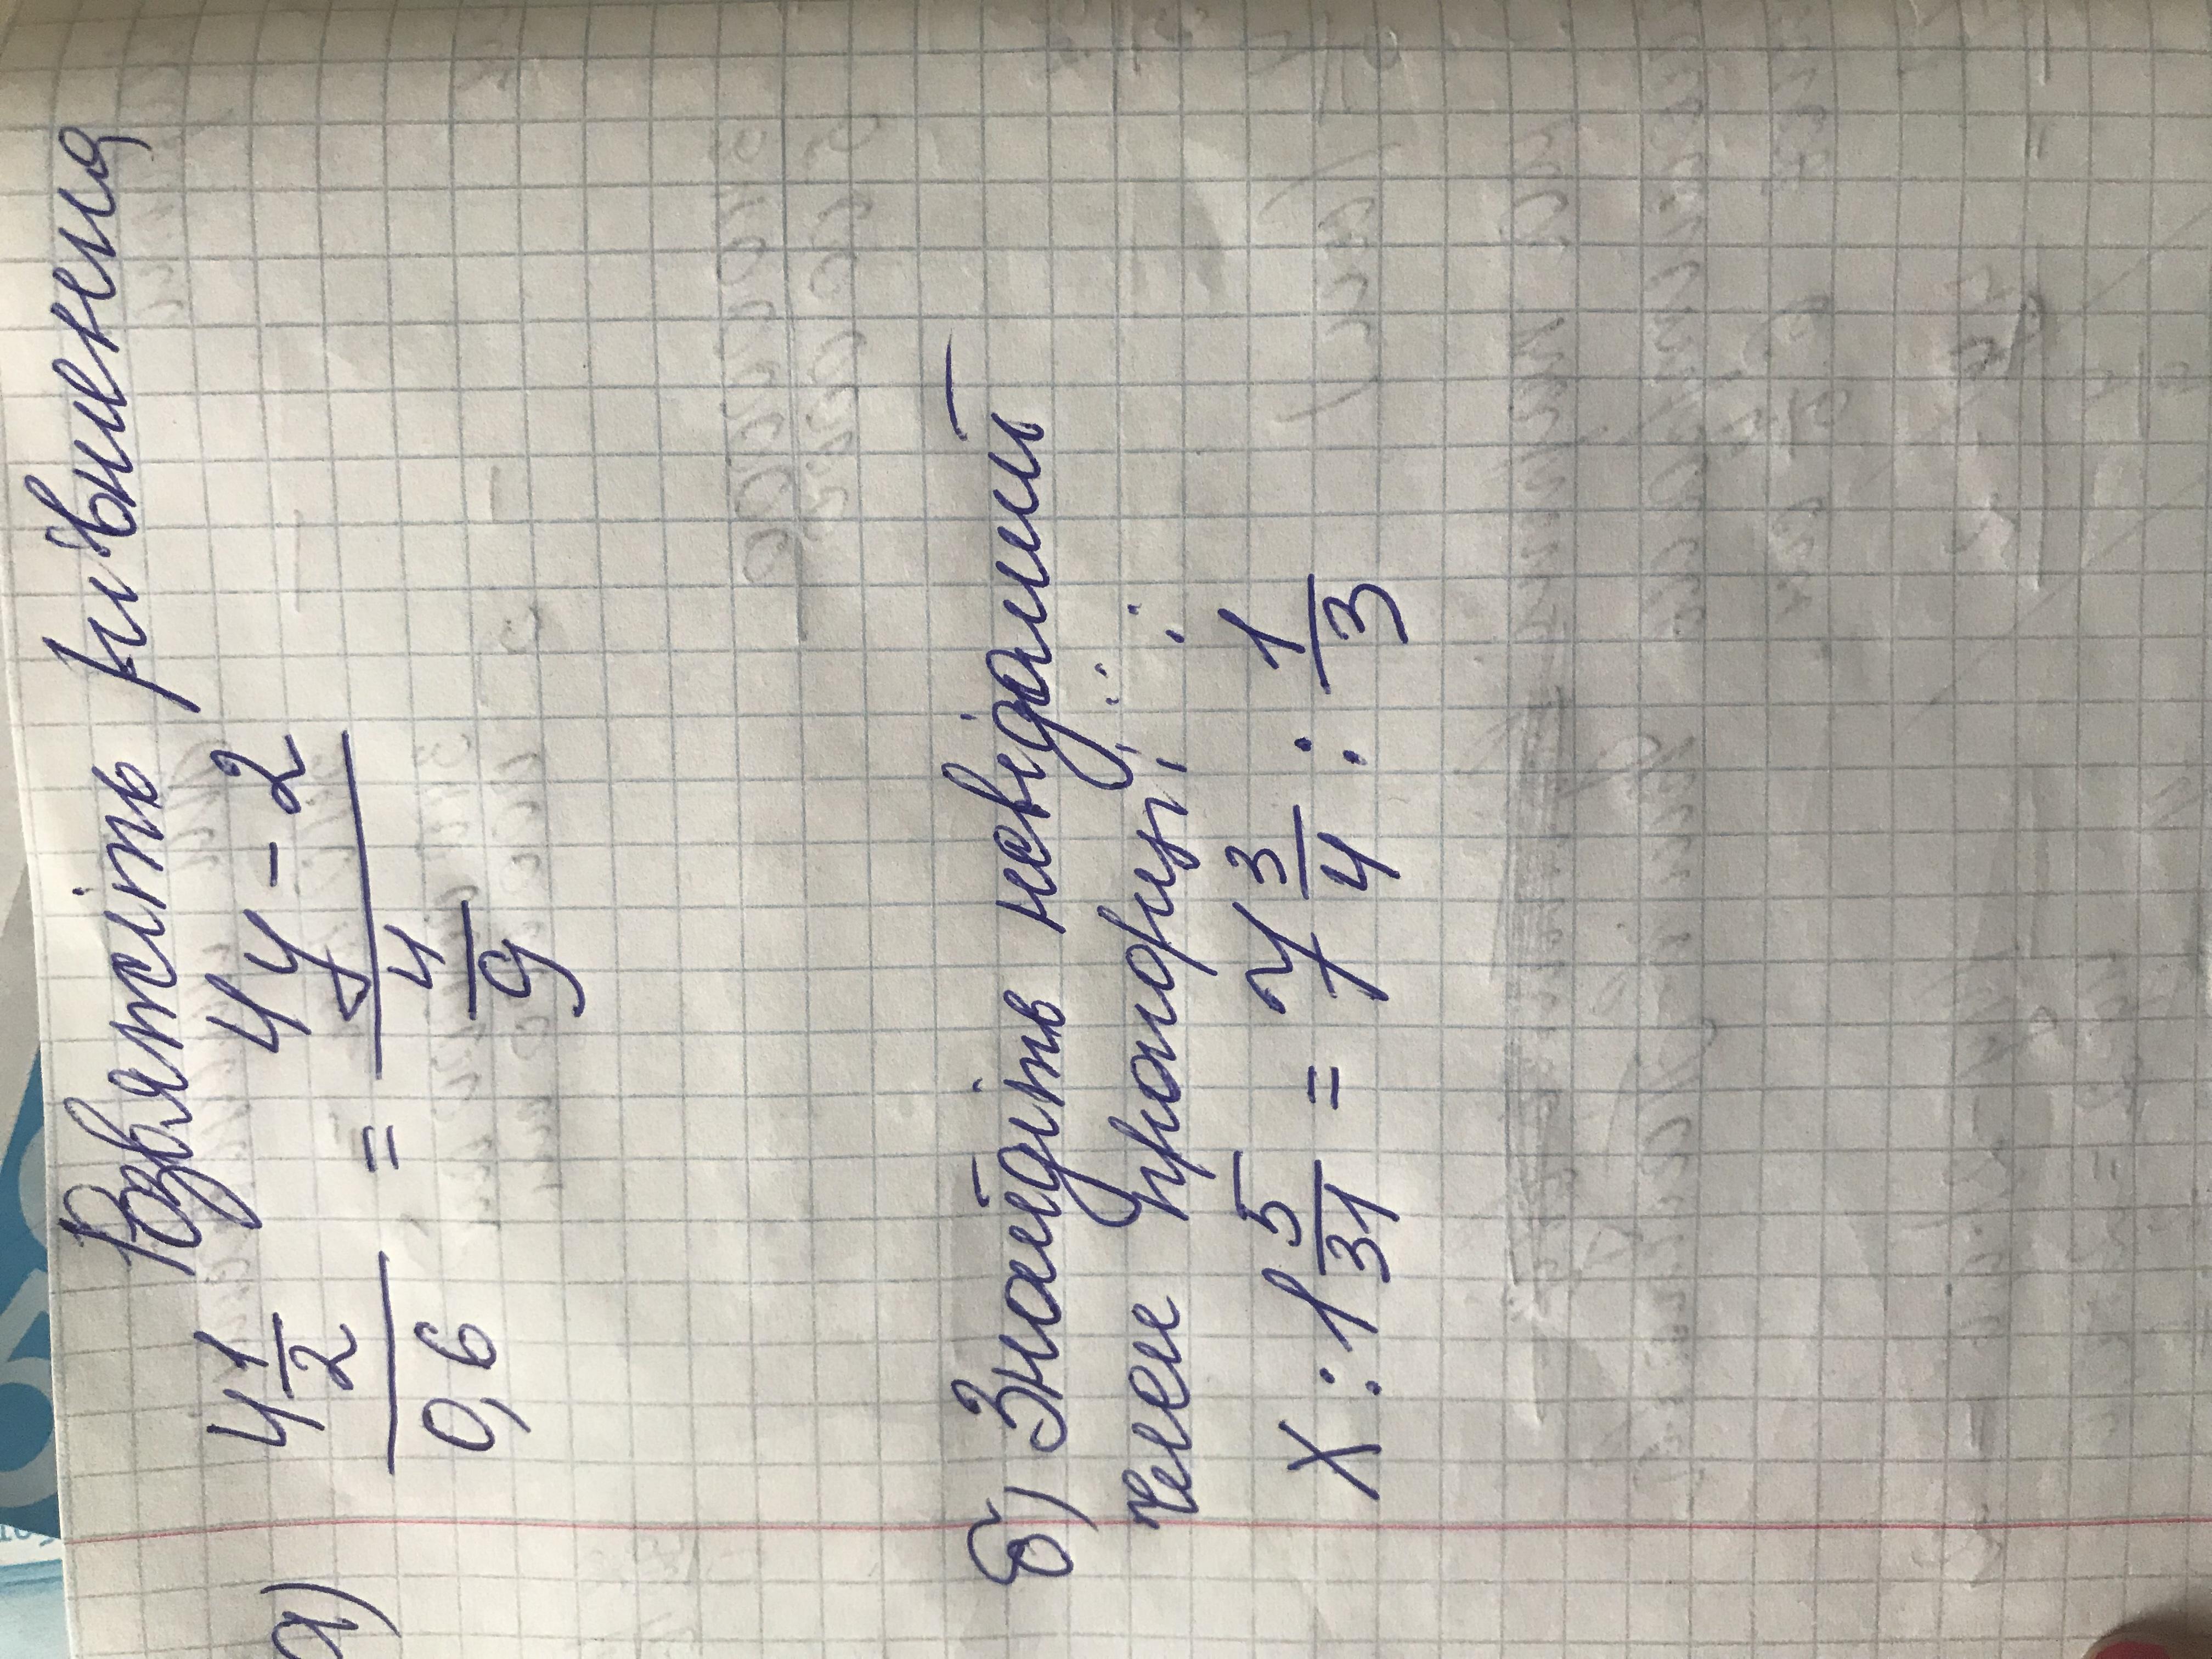 а) Розвяжіть рівнення
4 1/2 / 0,6 = 4y - 2 / 4/9
б) Знайдіть невідомий
член пропорції:
X : 1 5/31 = 7 3/4 : 1/3